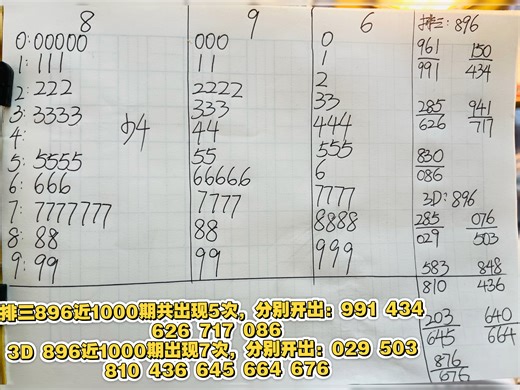 8 9 6 排三: 896
0: 00000 000 0 961 150
1: 111 11 1 991 434
2: 222 2222 2
3: 3333 333 33 285 941
4: 44 444 626 717
5: 5555 55 555 830
6: 666 66666 6 086
7: 7777777 7777 7777 3D: 896
8: 88 88 8888 285 076
9: 99 99 999 029 503
583 848
810 436
203 640
645 664
876
676
排三896近1000期共出现5次，分别开出：991 434
626 717 086
3D 896近1000期出现7次，分别开出：029 503
810 436 645 664 676